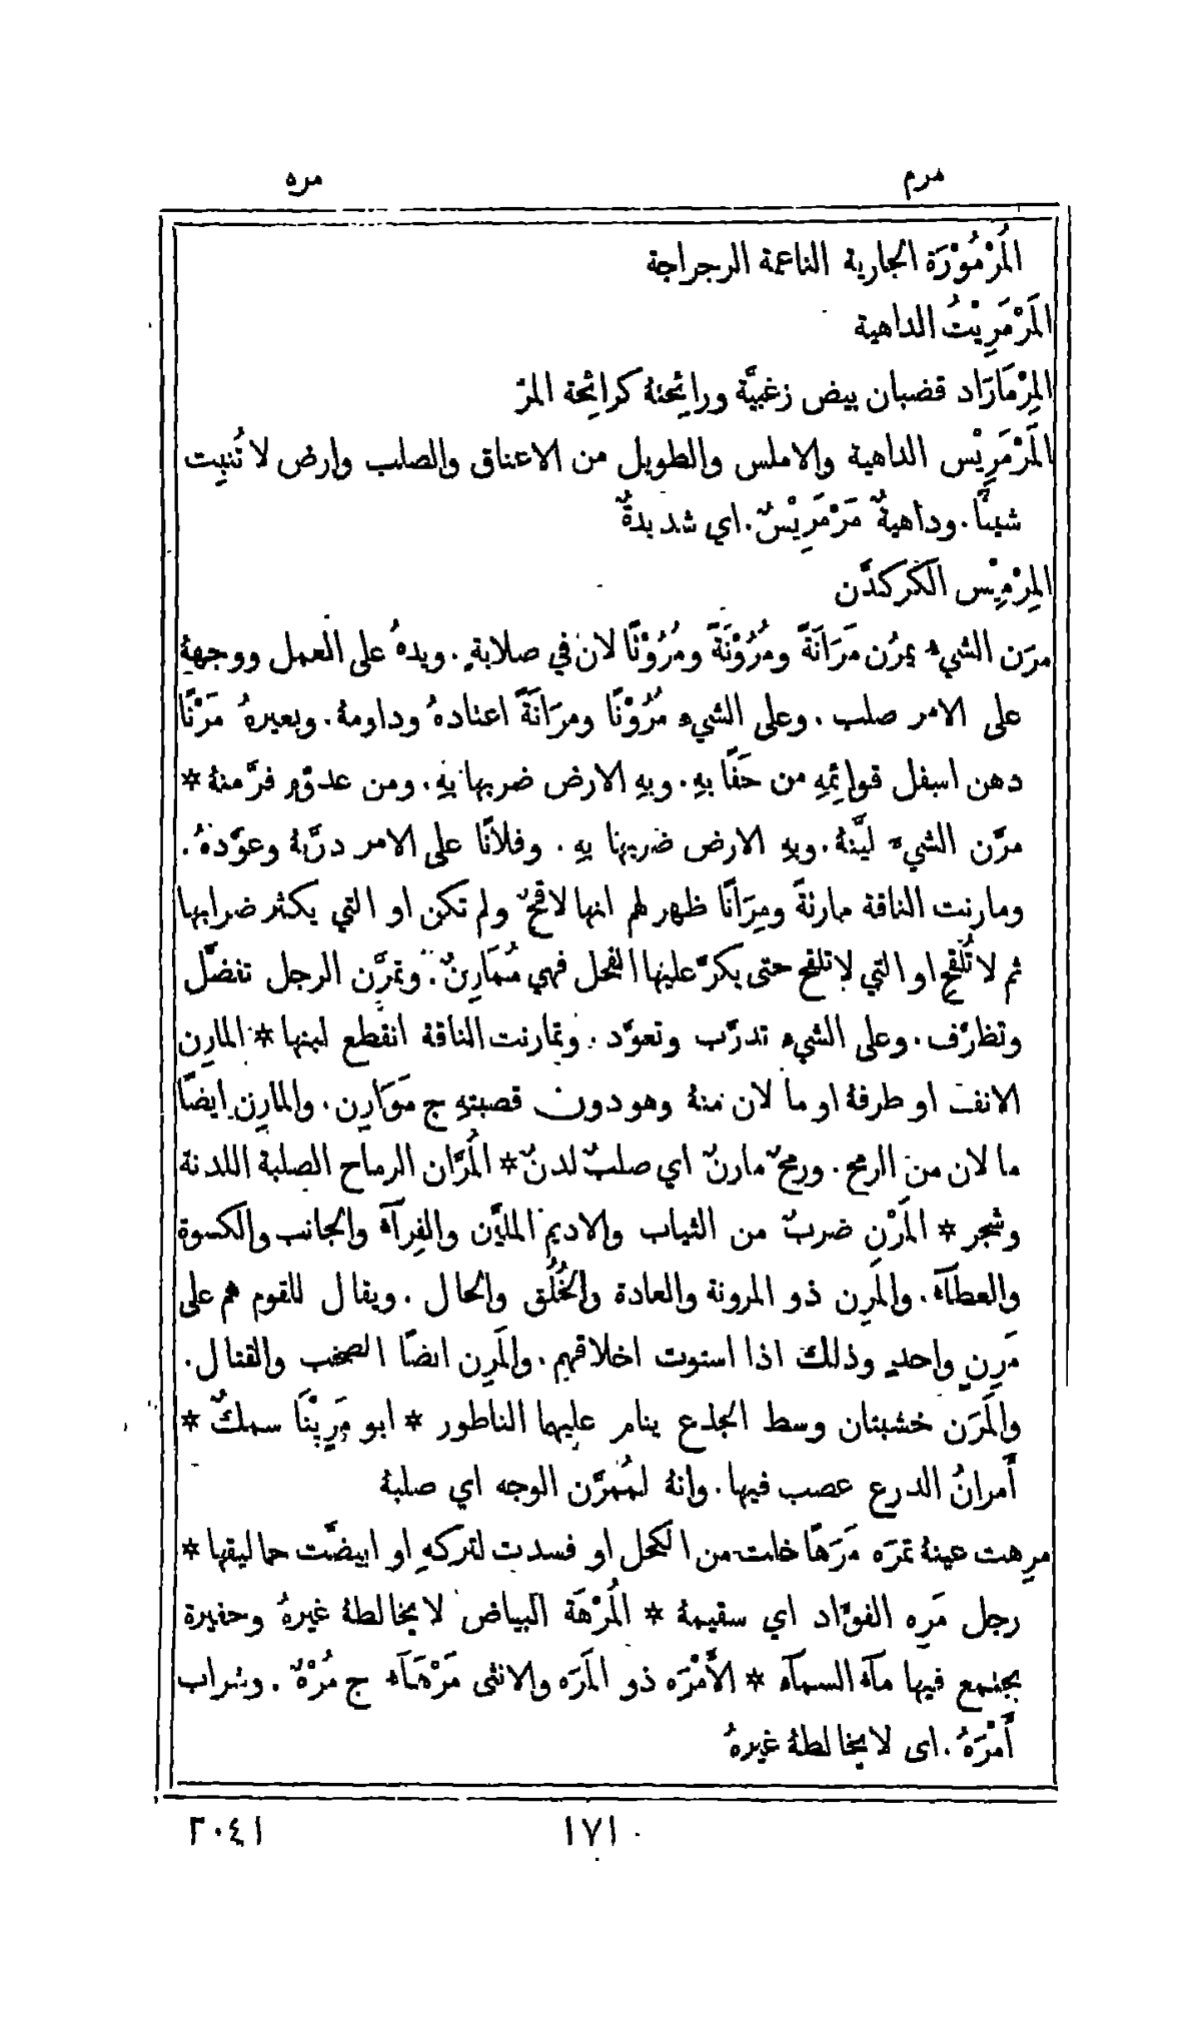 مرم
مره
المُرْمُوْرَة الجارية الناعمة الرجراجة
المَرْمَرِيْتُ الداهية
المِرْمَازَاد قضبان بيض زغبيَّة ورائِحتهُ كرائِحة المرّ
المَرْمَرِيْس الداهية والاملس والطويل من الاعناق والصلب وارض لا تُنبِت
شيئًا. وداهيةٌ مَرْمَرِيْسٌ. اي شديدةٌ
المِرْمِيْس الكركدَّن
مرَن الشيء يمرُن مَرَانَةً ومُرُوْنَةً ومُرُوْنًا لان في صلابةٍ. ويدهُ على العمل ووجههُ
على الامر صلب. وعلى الشيء مُرُوْنًا ومرَانَةً اعتادهُ وداومهُ. وبعيرهُ مَرْنًا
دهن اسفل قوائِمِهِ من حَفًا بهِ. وبهِ الارض ضربها بهِ. ومن عدوّهِ فرَّ منهُ *
مرَّن الشيء ليَّنهُ. وبهِ الارض ضربها بهِ. وفلانًا على الامر درَّبهُ وعوَّدهُ.
ومارنت الناقة مارنةً ومِرَانًا ظهر لهم انها لاقحٌ ولم تكن او التي يكثر ضرابها
ثم لا تُلقَح او التي لا تلقح حتى يكرّ عليها الفحل فهي مُمَارِنٌ. وتمرَّن الرجل تفضَّل
وتظرَّف. وعلى الشيء تدرَّب وتعوَّد. وتمارنت الناقة انقطع لبنها * المارِن
الانف او طرفهُ او ما لان منهُ وهو دون قصبتهِ ج مَوَارِن. والمارِن ايضًا
ما لان من الرمح. ورمحٌ مارنٌ اي صلبٌ لدنٌ * المُرَّان الرماح الصلبة اللدنة
وشجر * المَرْن ضربٌ من الثياب والاديم المليَّن والفِرآءُ والجانب والكسوة
والعطآء. والمَرِن ذو المرونة والعادة والخُلُق والحال. ويقال للقوم هم على
مَرِنٍ واحدٍ وذلك اذا استوت اخلاقهم. والمَرِن ايضًا الصخب والقتال.
والمَرَن خشبتان وسط الجذع ينام عليهما الناطور * ابو مَرِيْنَا سمكٌ *
أَمرانُ الدرع عصب فيها. وانهُ لمُمَرَّن الوجه اي صلبهُ
مرِهت عينهُ تمرَه مَرَهًا خلت من الكحل او فسدت لتركهِ او ابيضَّت حماليقها *
رجل مَرِه الفؤاد اي سقيمهُ * المُرْهَة البياض لا يخالطهُ غيرهُ وحفيرة
يجتمع فيها مآءُ السمآء * الأَمْرَه ذو المَرَه والانثى مَرْهَآءُ ج مُرْهٌ. وشراب
أَمْرَهُ. اى لا يخالطهُ غيرهُ
٢٠٤١
١٧١